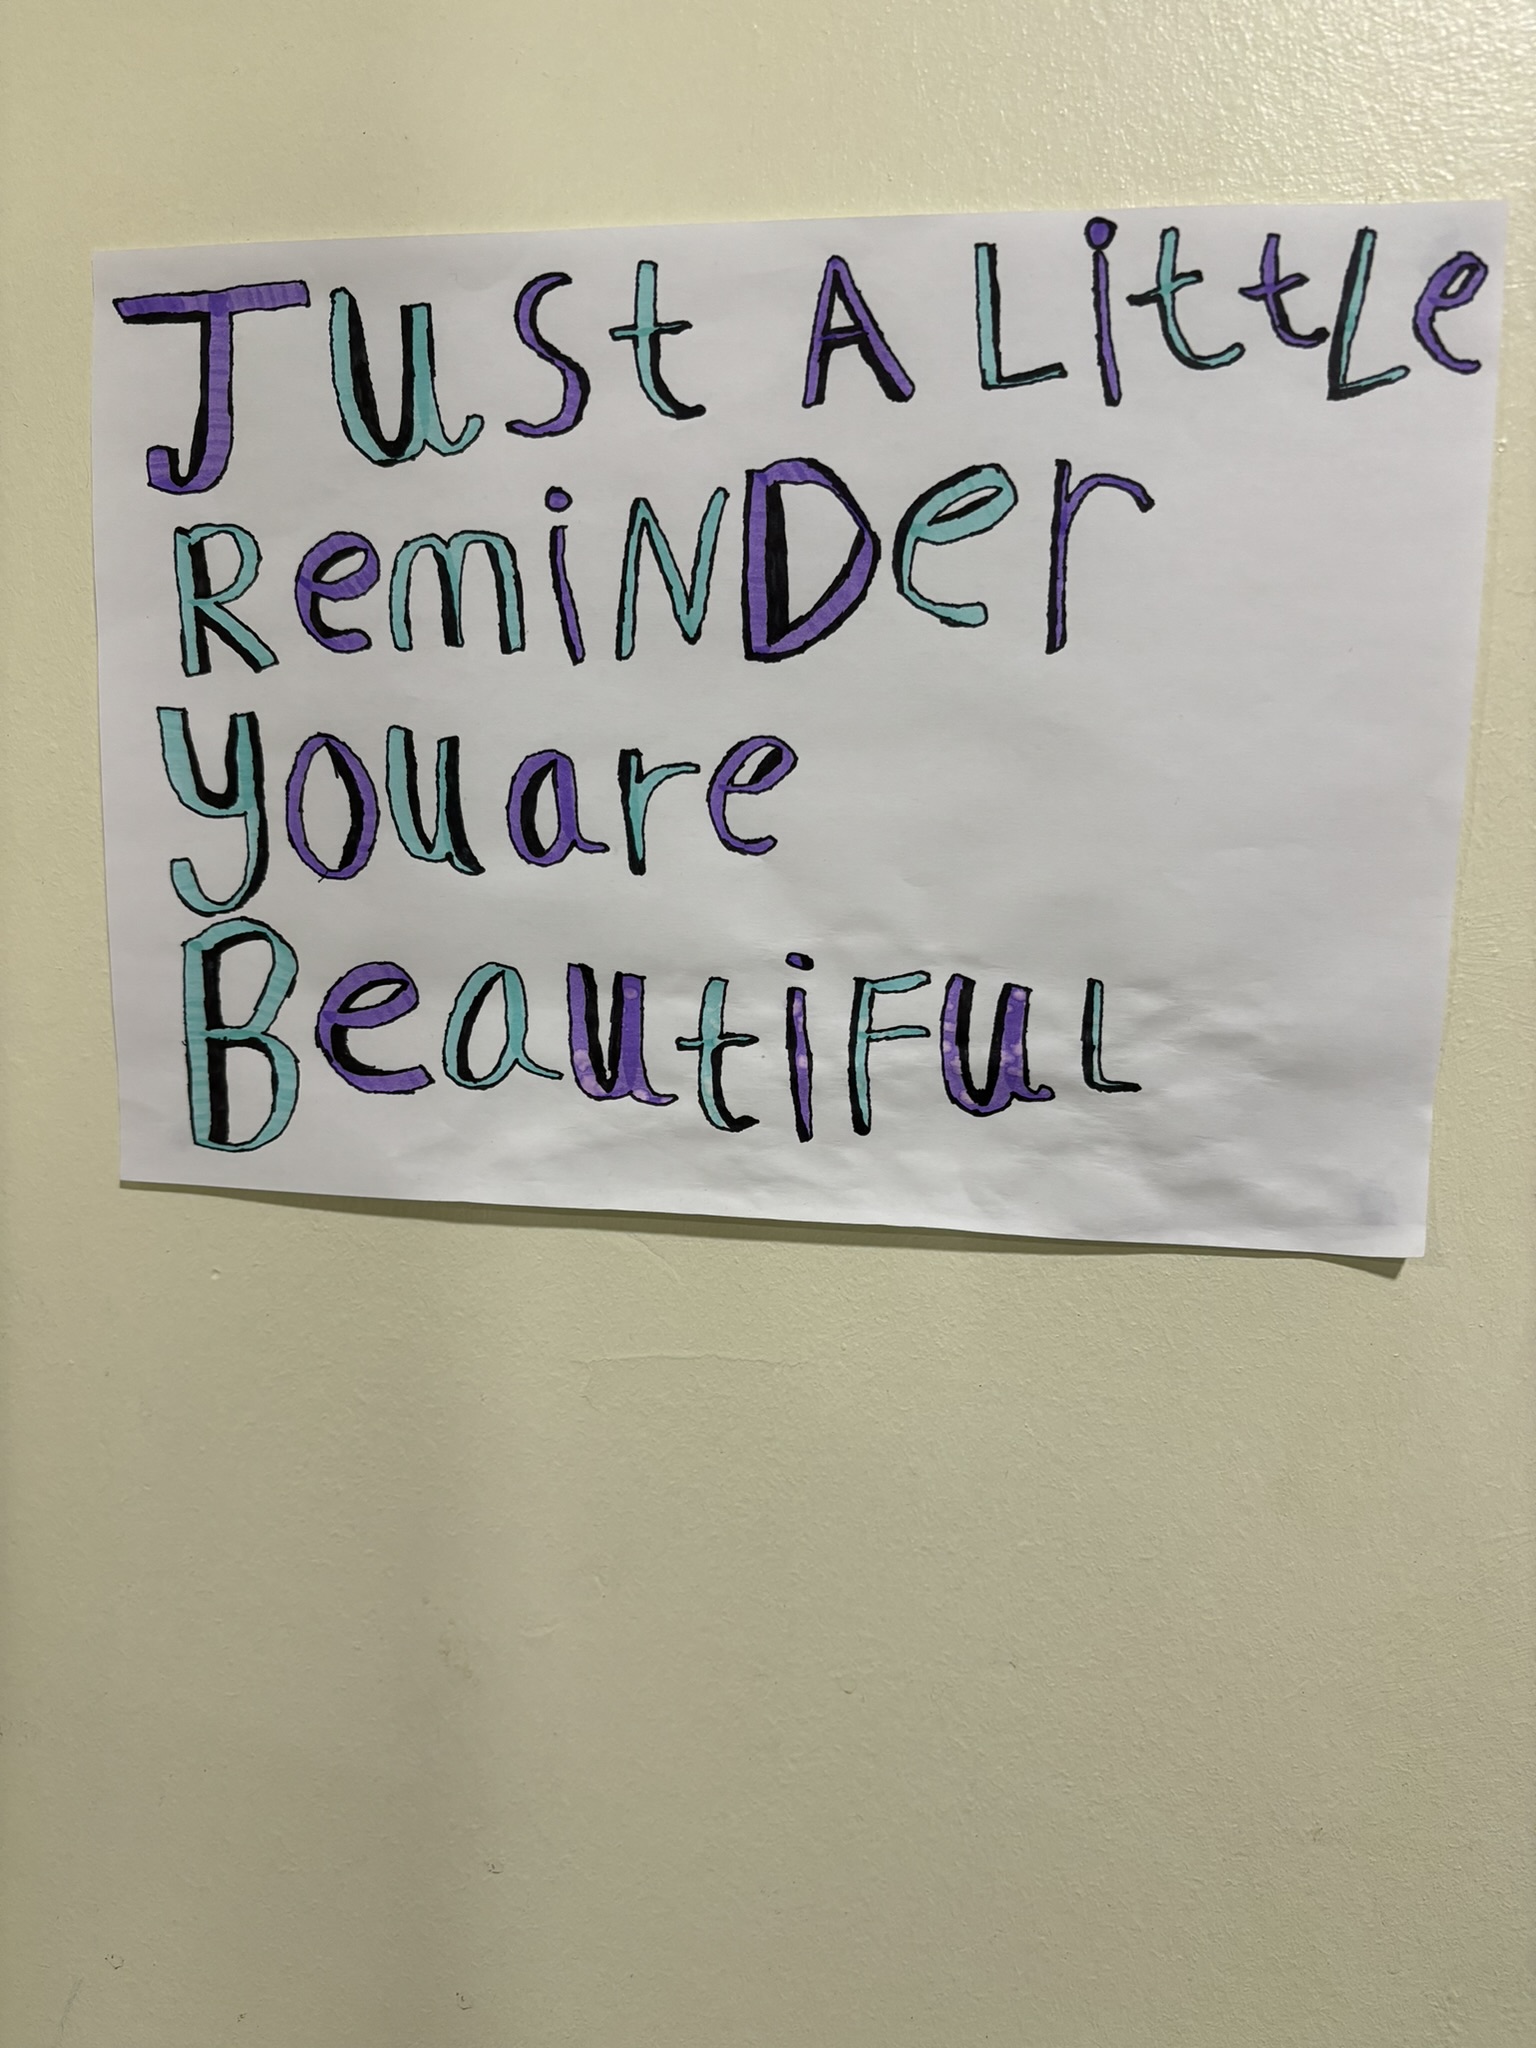 Just A Little
ReminDer
you are
BeautiFuL